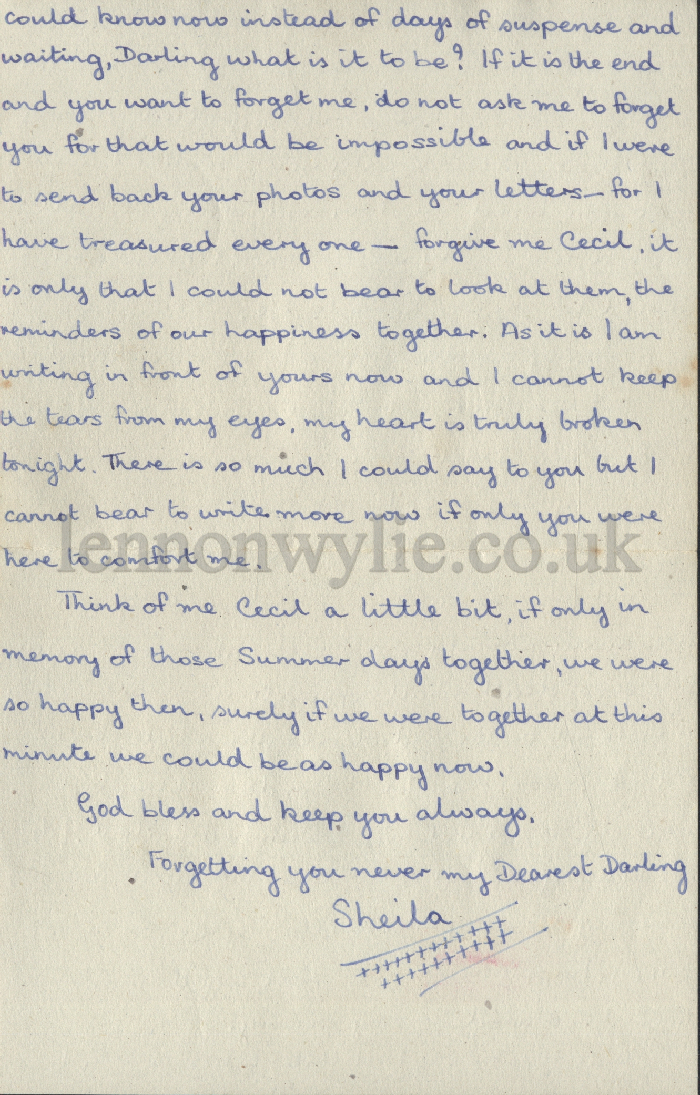 could know now instead of days of suspense and
waiting, Darling what is it to be? If it is the end
and you want to forget me, do not ask me to forget
you for that would be impossible and if I were
to send back your photos and your letters – for I
have treasured every one – forgive me Cecil, it
is only that I could not bear to look at them, the
reminders of our happiness together. As it is I am
writing in front of yours now and I cannot keep
the tears from my eyes, my heart is truly broken
tonight. There is so much I could say to you but I
cannot bear to write more now if only you were
lennonwylie.co.uk
here to comfort me.
Think of me Cecil a little bit, if only in
memory of those Summer days together, we were
so happy then, surely if we were together at this
minute we could be as happy now.
God bless and keep you always.
Forgetting you never my Dearest Darling
Sheila
+++++++++++
++++++++++